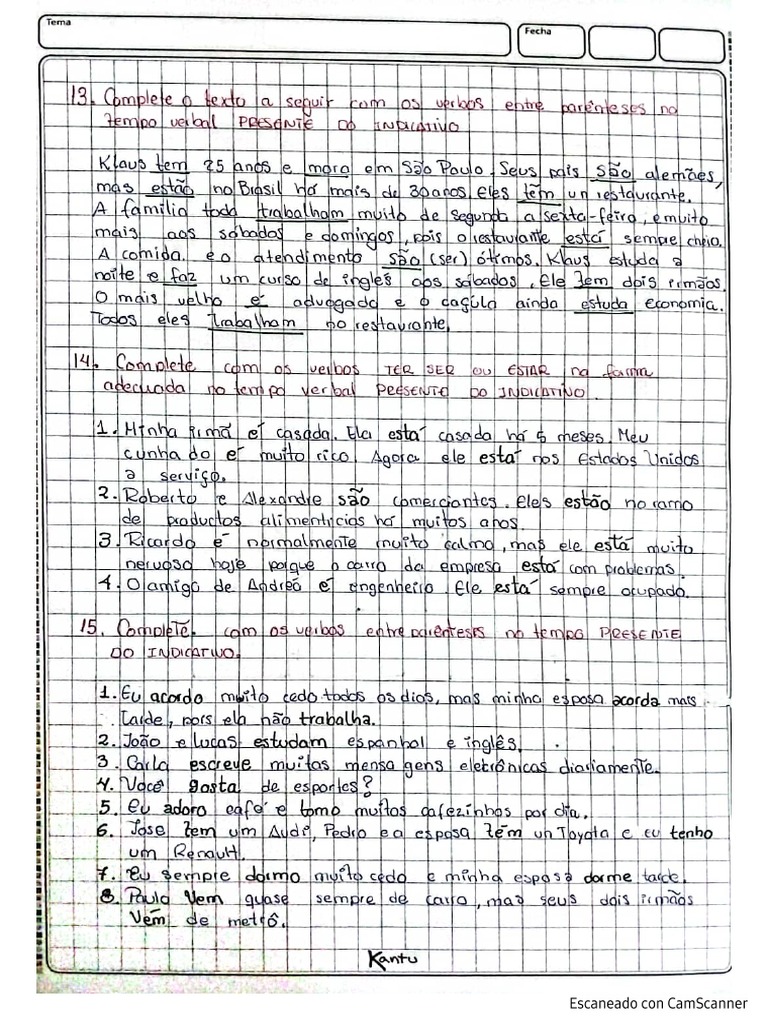 Tema
Fecha
13. Complete o texto a seguir com os verbos entre parênteses no
tempo verbal PRESENTE DO INDICATIVO
Klaus tem 25 anos e mora em São Paulo. Seus pais são alemães,
mas estão no Brasil há mais de 30 anos. eles têm un restaurante.
A família toda trabalham muito de segunda a sexta-feira, e muito
mais aos sábados e domingos, pois o restaurante está sempre cheio.
A comida. e o atendimento são (ser) ótimos. Klaus estuda a
noite e faz um curso de ingles aos sábados. Ele tem dois irmãos.
O mais velho é advogado e o caçula ainda estuda economia.
Todos eles trabalham no restaurante.
14. Complete com os verbos TER SER OU ESTAR na forma
adecuada no tempo verbal PRESENTE DO INDICATIVO.
1. Minha irmã é casada. Ela está casada há 5 meses. Meu
cunhado é muito rico. Agora ele está nos Estados Unidos
a serviço.
2. Roberto e Alexandre são comerciantes. Eles estão no ramo
de productos alimentícias há muitos anos.
3. Ricardo é normalmente muito calmo, mas ele está muito
nervoso hoje porque o carro da empresa está com problemas.
4. O amigo de Andreá é engenheiro. Ele está sempre ocupado.
15. Complete. com os verbos entre parênteses no tempo PRESENTE
DO INDICATIVO.
1. Eu acordo muito cedo todos os dias, mas minha esposa acorda mais
tarde, pois ela não trabalha.
2. João e Lucas estudam espanhol e inglês.
3. Carla escreve muitas mensagens eletrônicas diariamente.
4. Você gosta de esportes?
5. Eu adoro café e tomo muitos cafezinhos por dia.
6. Jose tem um Audi, Pedro e a esposa têm un Toyota e eu tenho
um Renault.
7. Eu sempre dormo muito cedo e minha esposa dorme tarde.
8. Paulo vem quase sempre de carro, mas seus dois irmãos
vêm de metrô.
Kantu
Escaneado con CamScanner